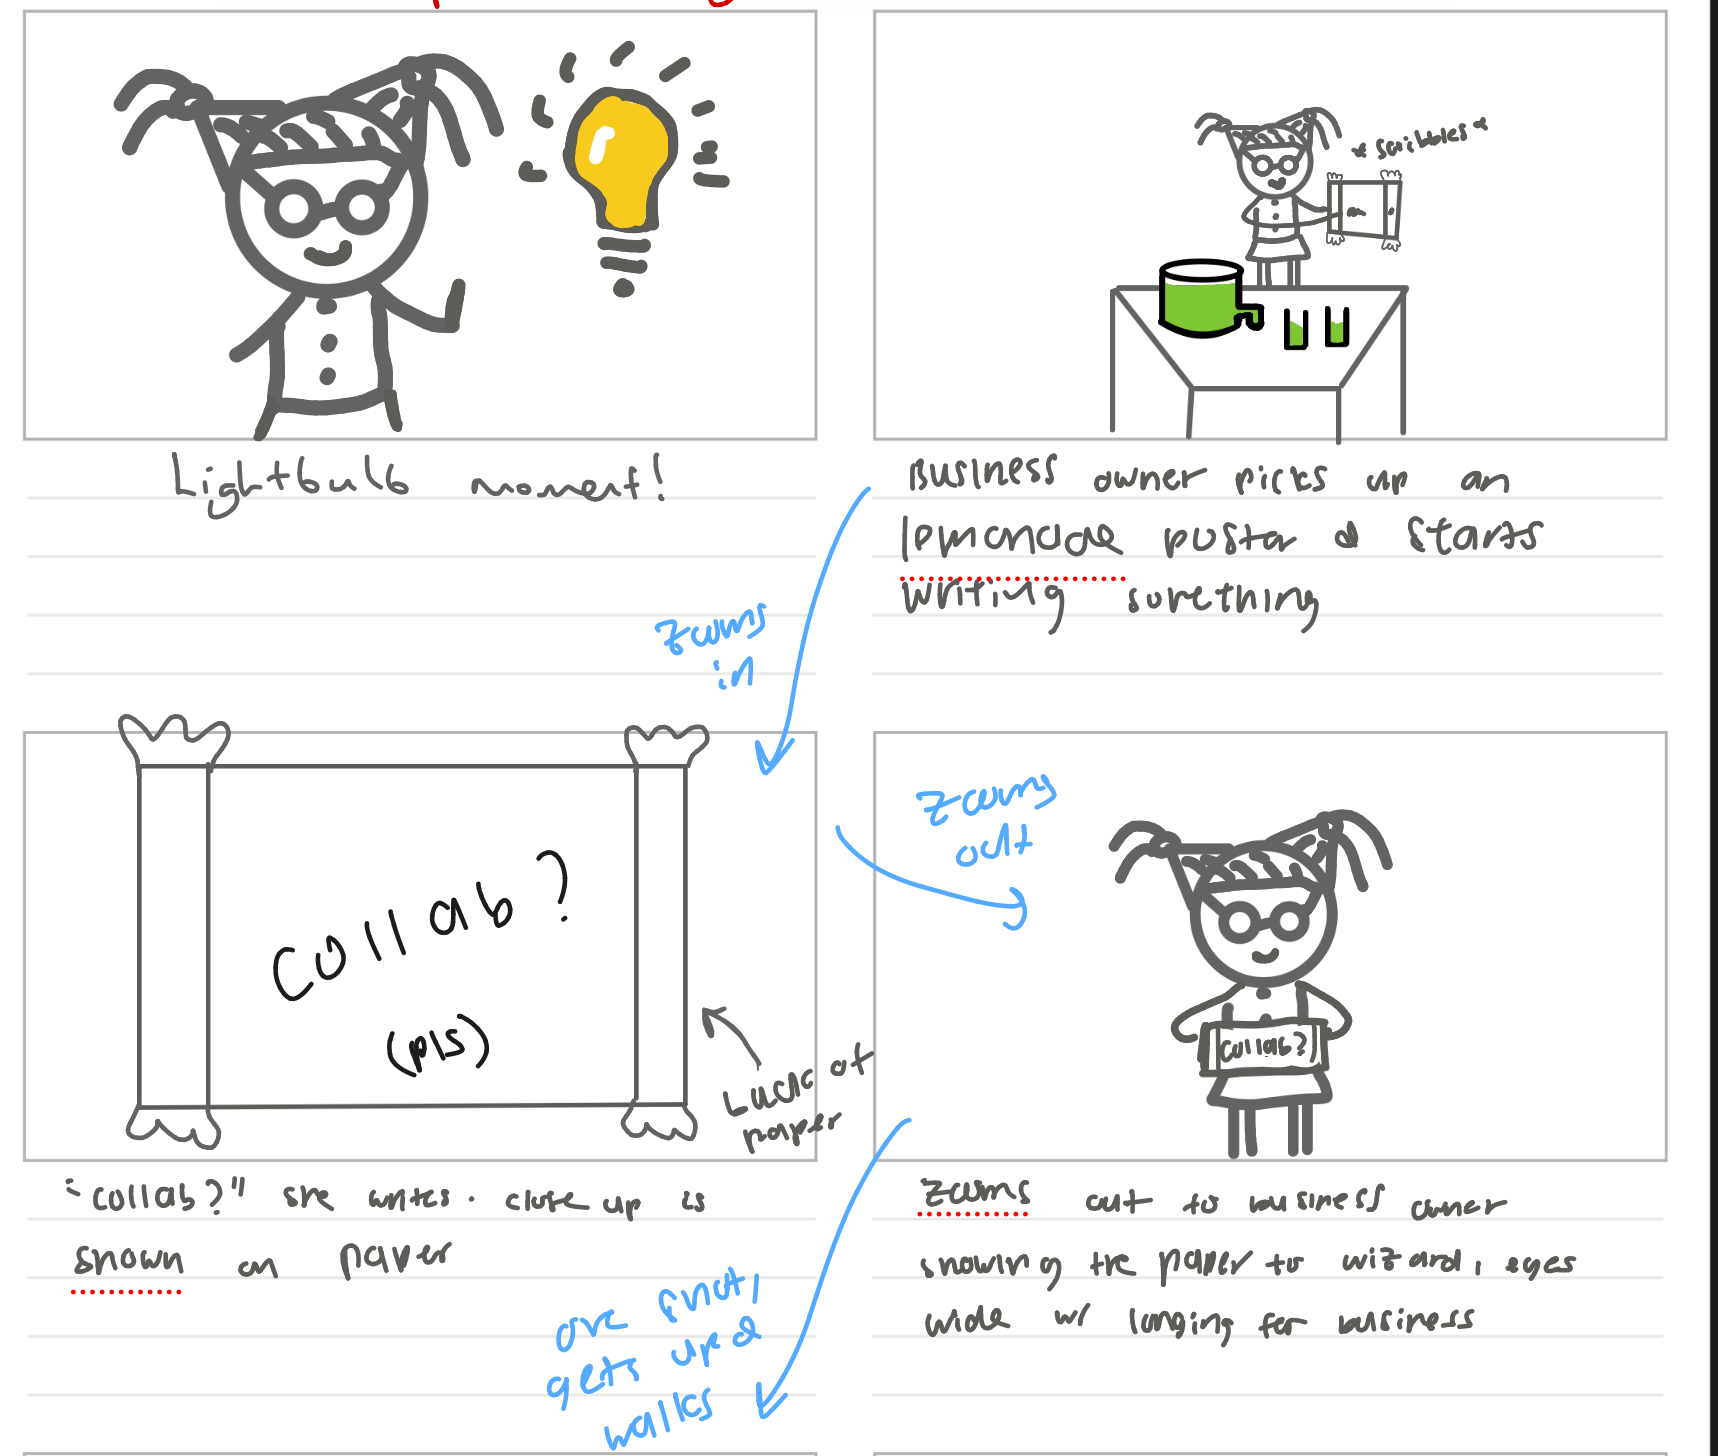 Lightbulb moment!
* scribbles *
Business owner picks up an
lemonade poster & starts
writing something
zooms
in
Collab?
(pls)
back of
paper
"collab?" she writes. close up is
shown on paper
zooms
out
collab?
zooms out to business owner
showing the paper to wizard, eyes
wide w/ longing for business
one shot,
gets up &
walks